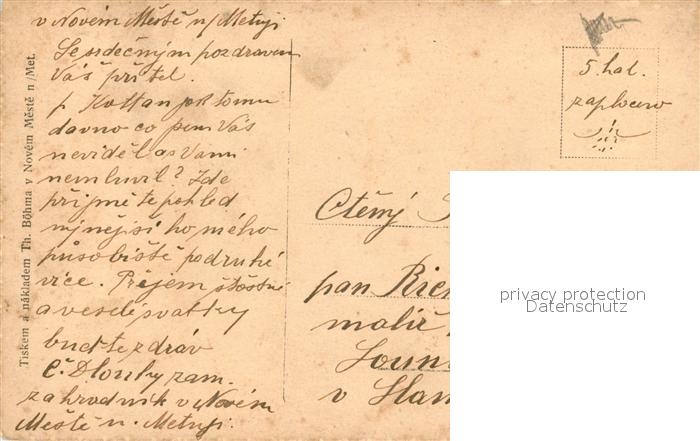 v Novém Městě n/Metují
Se srdečným pozdravem
Váš přítel.
p Kottan jak tomu
davno co jsem Vás
neviděl as Vami
nemluvil? Zde
přijměte pohled
nynejsí ho mého
působiště podruhé
více. Přejem štastné
a veselé svatky
buďte zdráv
Č. Dlouhy zam.
zahradník v Novém
Městě n. Metují.
Tiskem a nákladem Th. Böhma v Novém Městě n/Met.
5 hal.
zaplaceno
Ctěný
pan
malíř
v
privacy protection
Datenschutz